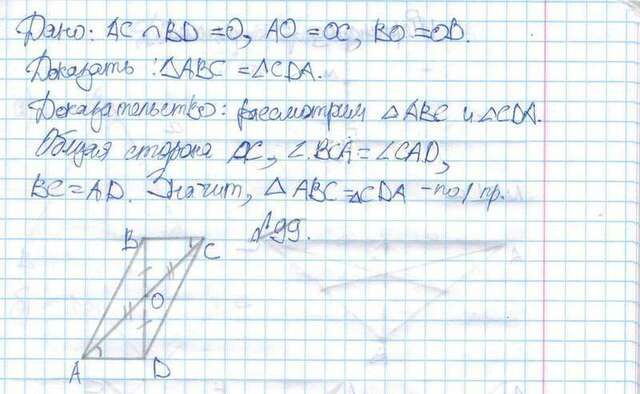 Дано: AC ∩ BD = O, AO = OC, BO = OD.
Доказать: △ABC = △CDA.
Доказательство: рассмотрим △ABC и △CDA.
Общая сторона AC, ∠BCA = ∠CAD,
BC = AD. Значит, △ABC = △CDA – по I пр.
№99.
B C
O
A D